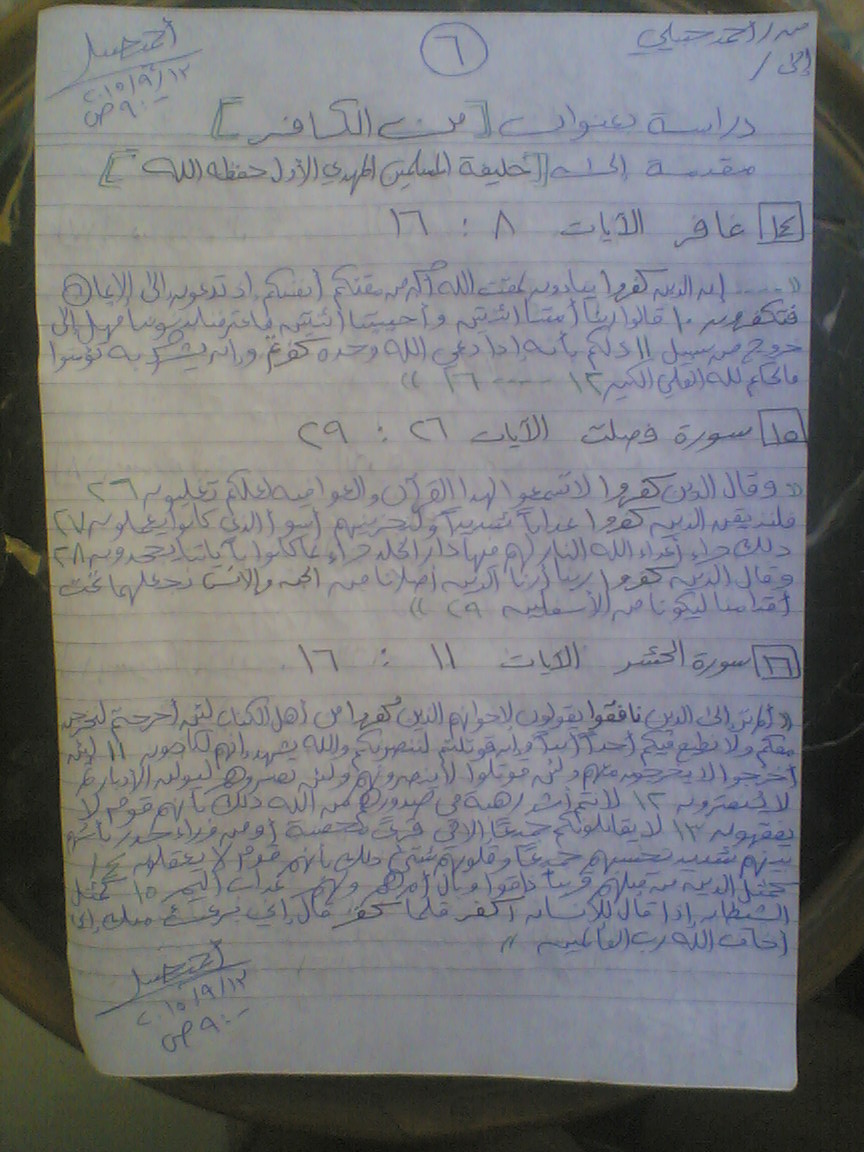 من / أحمد حنبلي
إلى /
٦
٢٠١٥/٩/١٢
٩:٠٠ ص
دراسة بعنوان [ من الكافر ]
مقدمة إلى [ خليفة المسلمين المهدي الأول حفظه الله ]
١٤ غافر الآيات ٨ : ١٦
« ..... إن الذين كفروا ينادون لمقت الله أكبر من مقتكم أنفسكم إذ تدعون إلى الإيمان
فتكفرون ١٠ قالوا ربنا أمتنا اثنتين وأحييتنا اثنتين فاعترفنا بذنوبنا فهل إلى
خروج من سبيل ١١ ذلكم بأنه إذا دعي الله وحده كفرتم وإن يشرك به تؤمنوا
فالحكم لله العلي الكبير ١٢ ..... ١٦ »
١٥ سورة فصلت الآيات ٢٦ : ٢٩
« وقال الذين كفروا لا تسمعوا لهذا القرآن والغوا فيه لعلكم تغلبون ٢٦
فلنذيقن الذين كفروا عذاباً شديداً ولنجزينهم أسوأ الذي كانوا يعملون ٢٧
ذلك جزاء أعداء الله النار لهم فيها دار الخلد جزاء بما كانوا بآياتنا يجحدون ٢٨
وقال الذين كفروا ربنا أرنا الذين أضلانا من الجن والإنس نجعلهما تحت
أقدامنا ليكونا من الأسفلين ٢٩ »
١٦ سورة الحشر الآيات ١١ : ١٦
« ألم تر إلى الذين نافقوا يقولون لإخوانهم الذين كفروا من أهل الكتاب لئن أخرجتم لنخرجن
معكم ولا نطيع فيكم أحداً أبداً وإن قوتلتم لننصرنكم والله يشهد إنهم لكاذبون ١١ لئن
أخرجوا لا يخرجون معهم ولئن قوتلوا لا ينصرونهم ولئن نصروهم ليولن الأدبار ثم
لا ينصرون ١٢ لأنتم أشد رهبة في صدورهم من الله ذلك بأنهم قوم لا
يفقهون ١٣ لا يقاتلونكم جميعاً إلا في قرى محصنة أو من وراء جدر بأسهم
بينهم شديد تحسبهم جميعاً وقلوبهم شتى ذلك بأنهم قوم لا يعقلون ١٤
كمثل الذين من قبلهم قريباً ذاقوا وبال أمرهم ولهم عذاب أليم ١٥ كمثل
الشيطان إذا قال للإنسان اكفر فلما كفر قال إني بريء منك إني
أخاف الله رب العالمين »
٢٠١٥/٩/١٢
٩:٠٠ ص